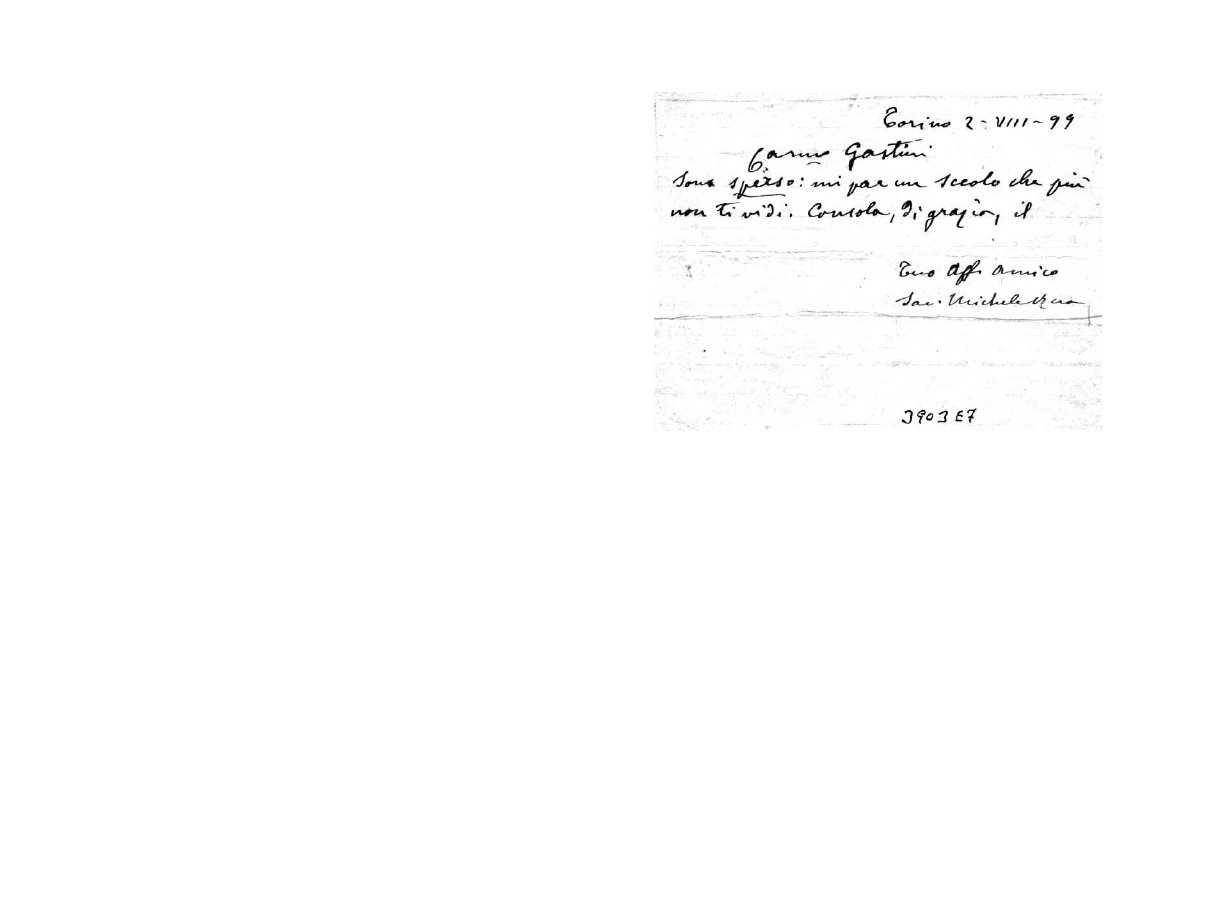 Torino 2-VIII-99
Carmo Gastini
Sono sperso: mi par un secolo che più
non ti vidi. Consola, di grazia, il
Tuo Aff. amico
Sac. Michele Rua
3903E7